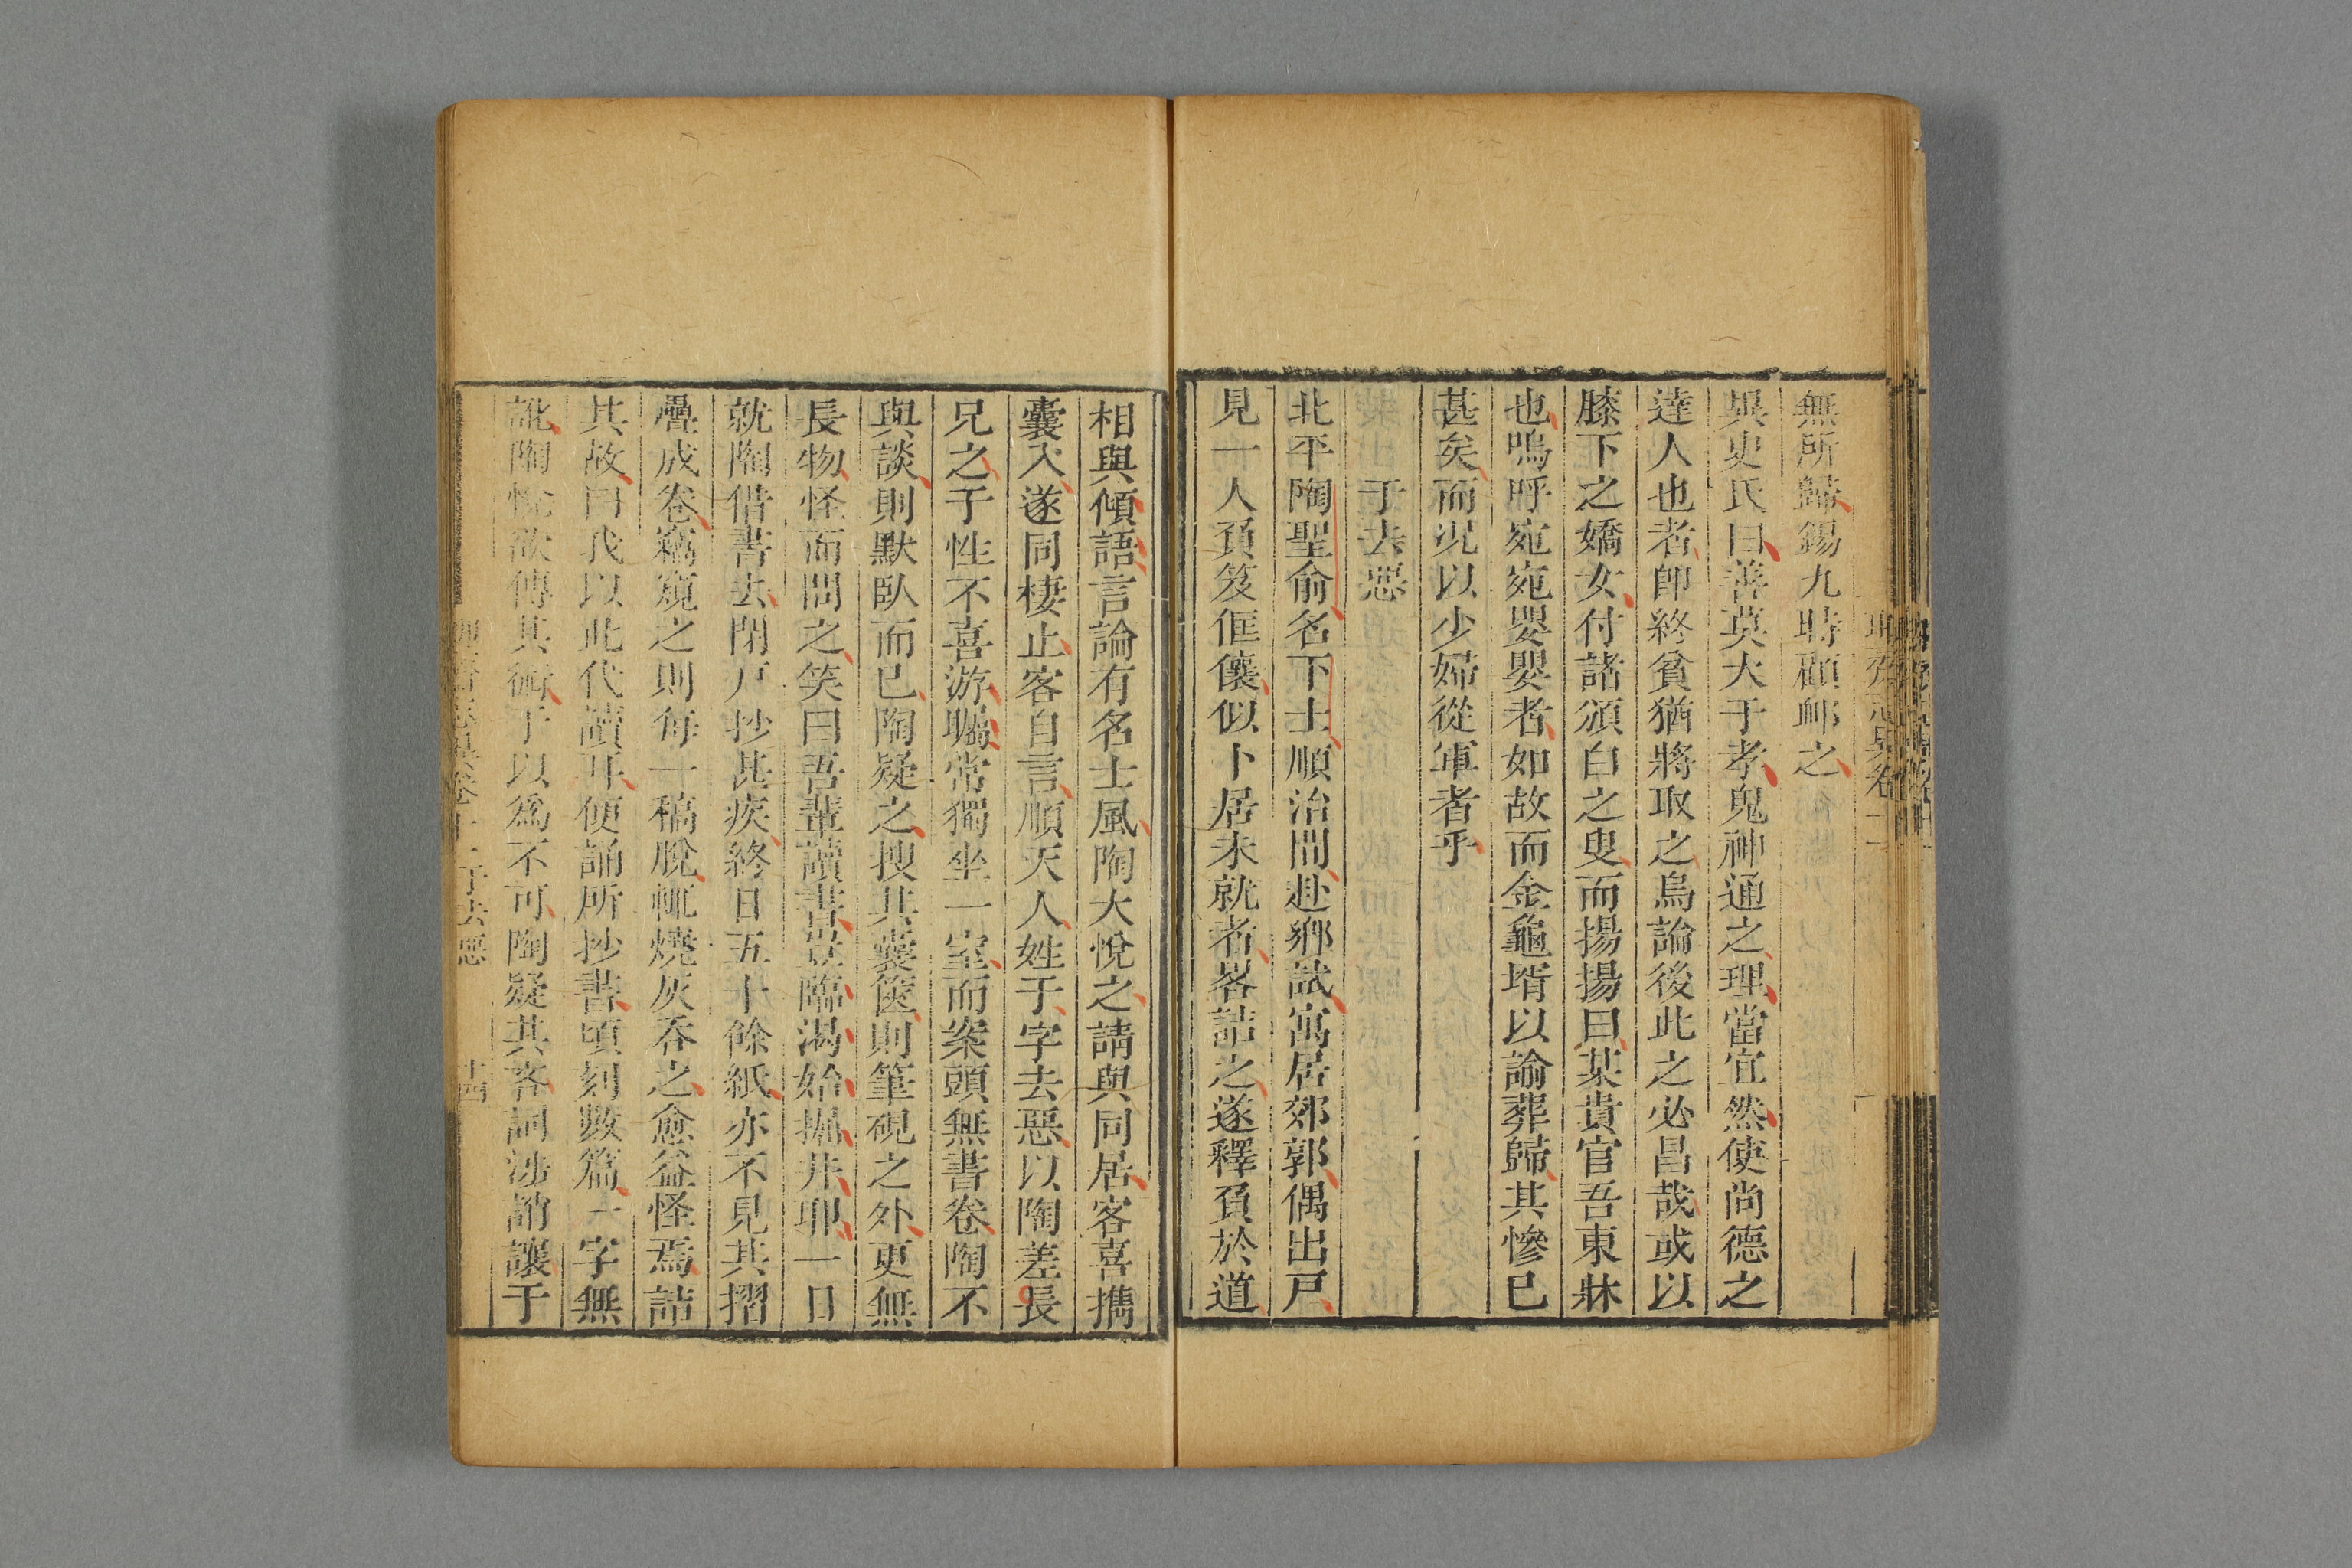 無所歸錫九時顧䘏之
異史氏曰善莫大于孝鬼神通之理當宜然使尚德之
達人也者卽終貧猶將取之烏論後此之必昌哉或以
膝下之嬌女付諸頒白之叟而揚揚曰某貴官吾東牀
也嗚呼宛宛嬰嬰者如故而金龜壻以諭葬歸其慘已
甚矣而況以少婦從軍者乎
于去惡
北平陶聖俞名下士順治間赴鄉試寓居郊郭偶出戸
見一人負笈偟儴似卜居未就者畧詰之遂釋負於道
相與傾語言論有名士風陶大悅之請與同居客喜攜
囊入遂同棲止客自言順天人姓于字去惡以陶差長
兄之于性不喜游矚常獨坐一室而案頭無書卷陶不
與談則默臥而已陶疑之搜其囊篋則筆硯之外更無
長物怪而問之笑曰吾輩讀書豈臨渴始掘井耶一日
就陶借書去閉戸抄甚疾終日五十餘紙亦不見其摺
疊成卷竊窺之則每一稿脫輒燒灰吞之愈益怪焉詰
其故曰我以此代讀耳便誦所抄書頃刻數篇一字無
訛陶悅欲傳其術于以爲不可陶疑其吝詞涉誚讓于
于去惡
十四